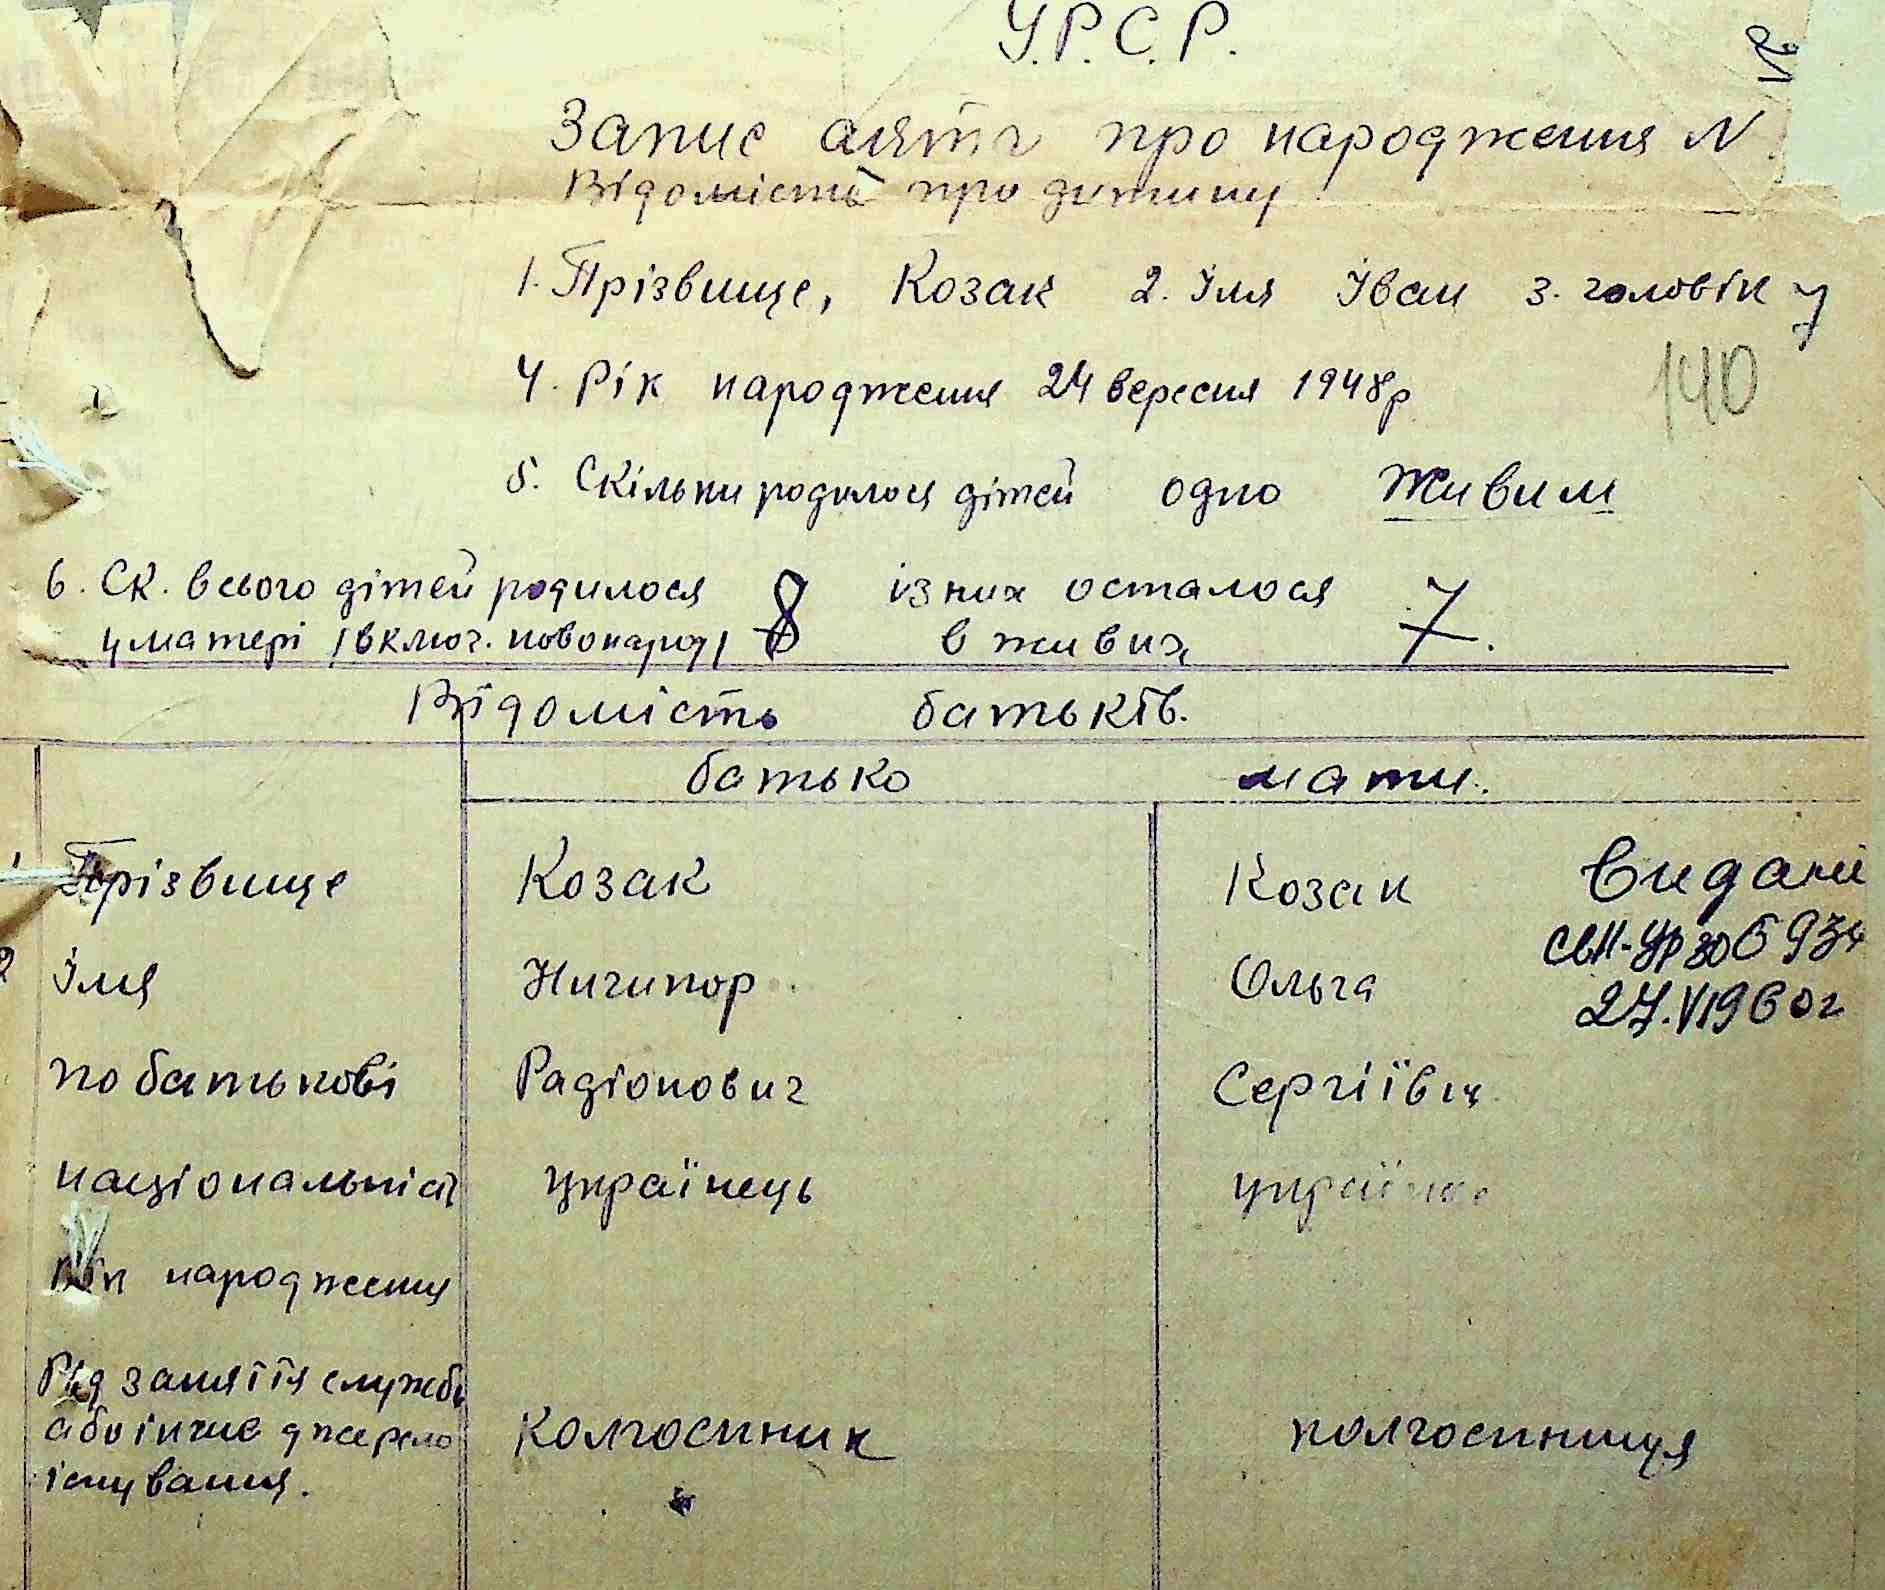 У.Р.С.Р.
Запис акта про народження N
Відомість про дитину
1. Прізвище, Козак 2. Імя Іван 3. чоловік
140
4. Рік народження 24 вересня 1948р
5. Скільки родилося дітей одно живим
6. Ск. всього дітей родилося 8 із них осталося 7.
у матері /включ. новонарод/ в живих
Відомість батьків.
батько мати.
1 Прізвище Козак Козак
Видане
2 Імя Ничипор Ольга
27.VI 1960г
по батькові Радіонович Сергіївн
національніст українець українка
Рік народження
Рід заняття служба
або інше джерело колгоспник колгоспниця
існування.